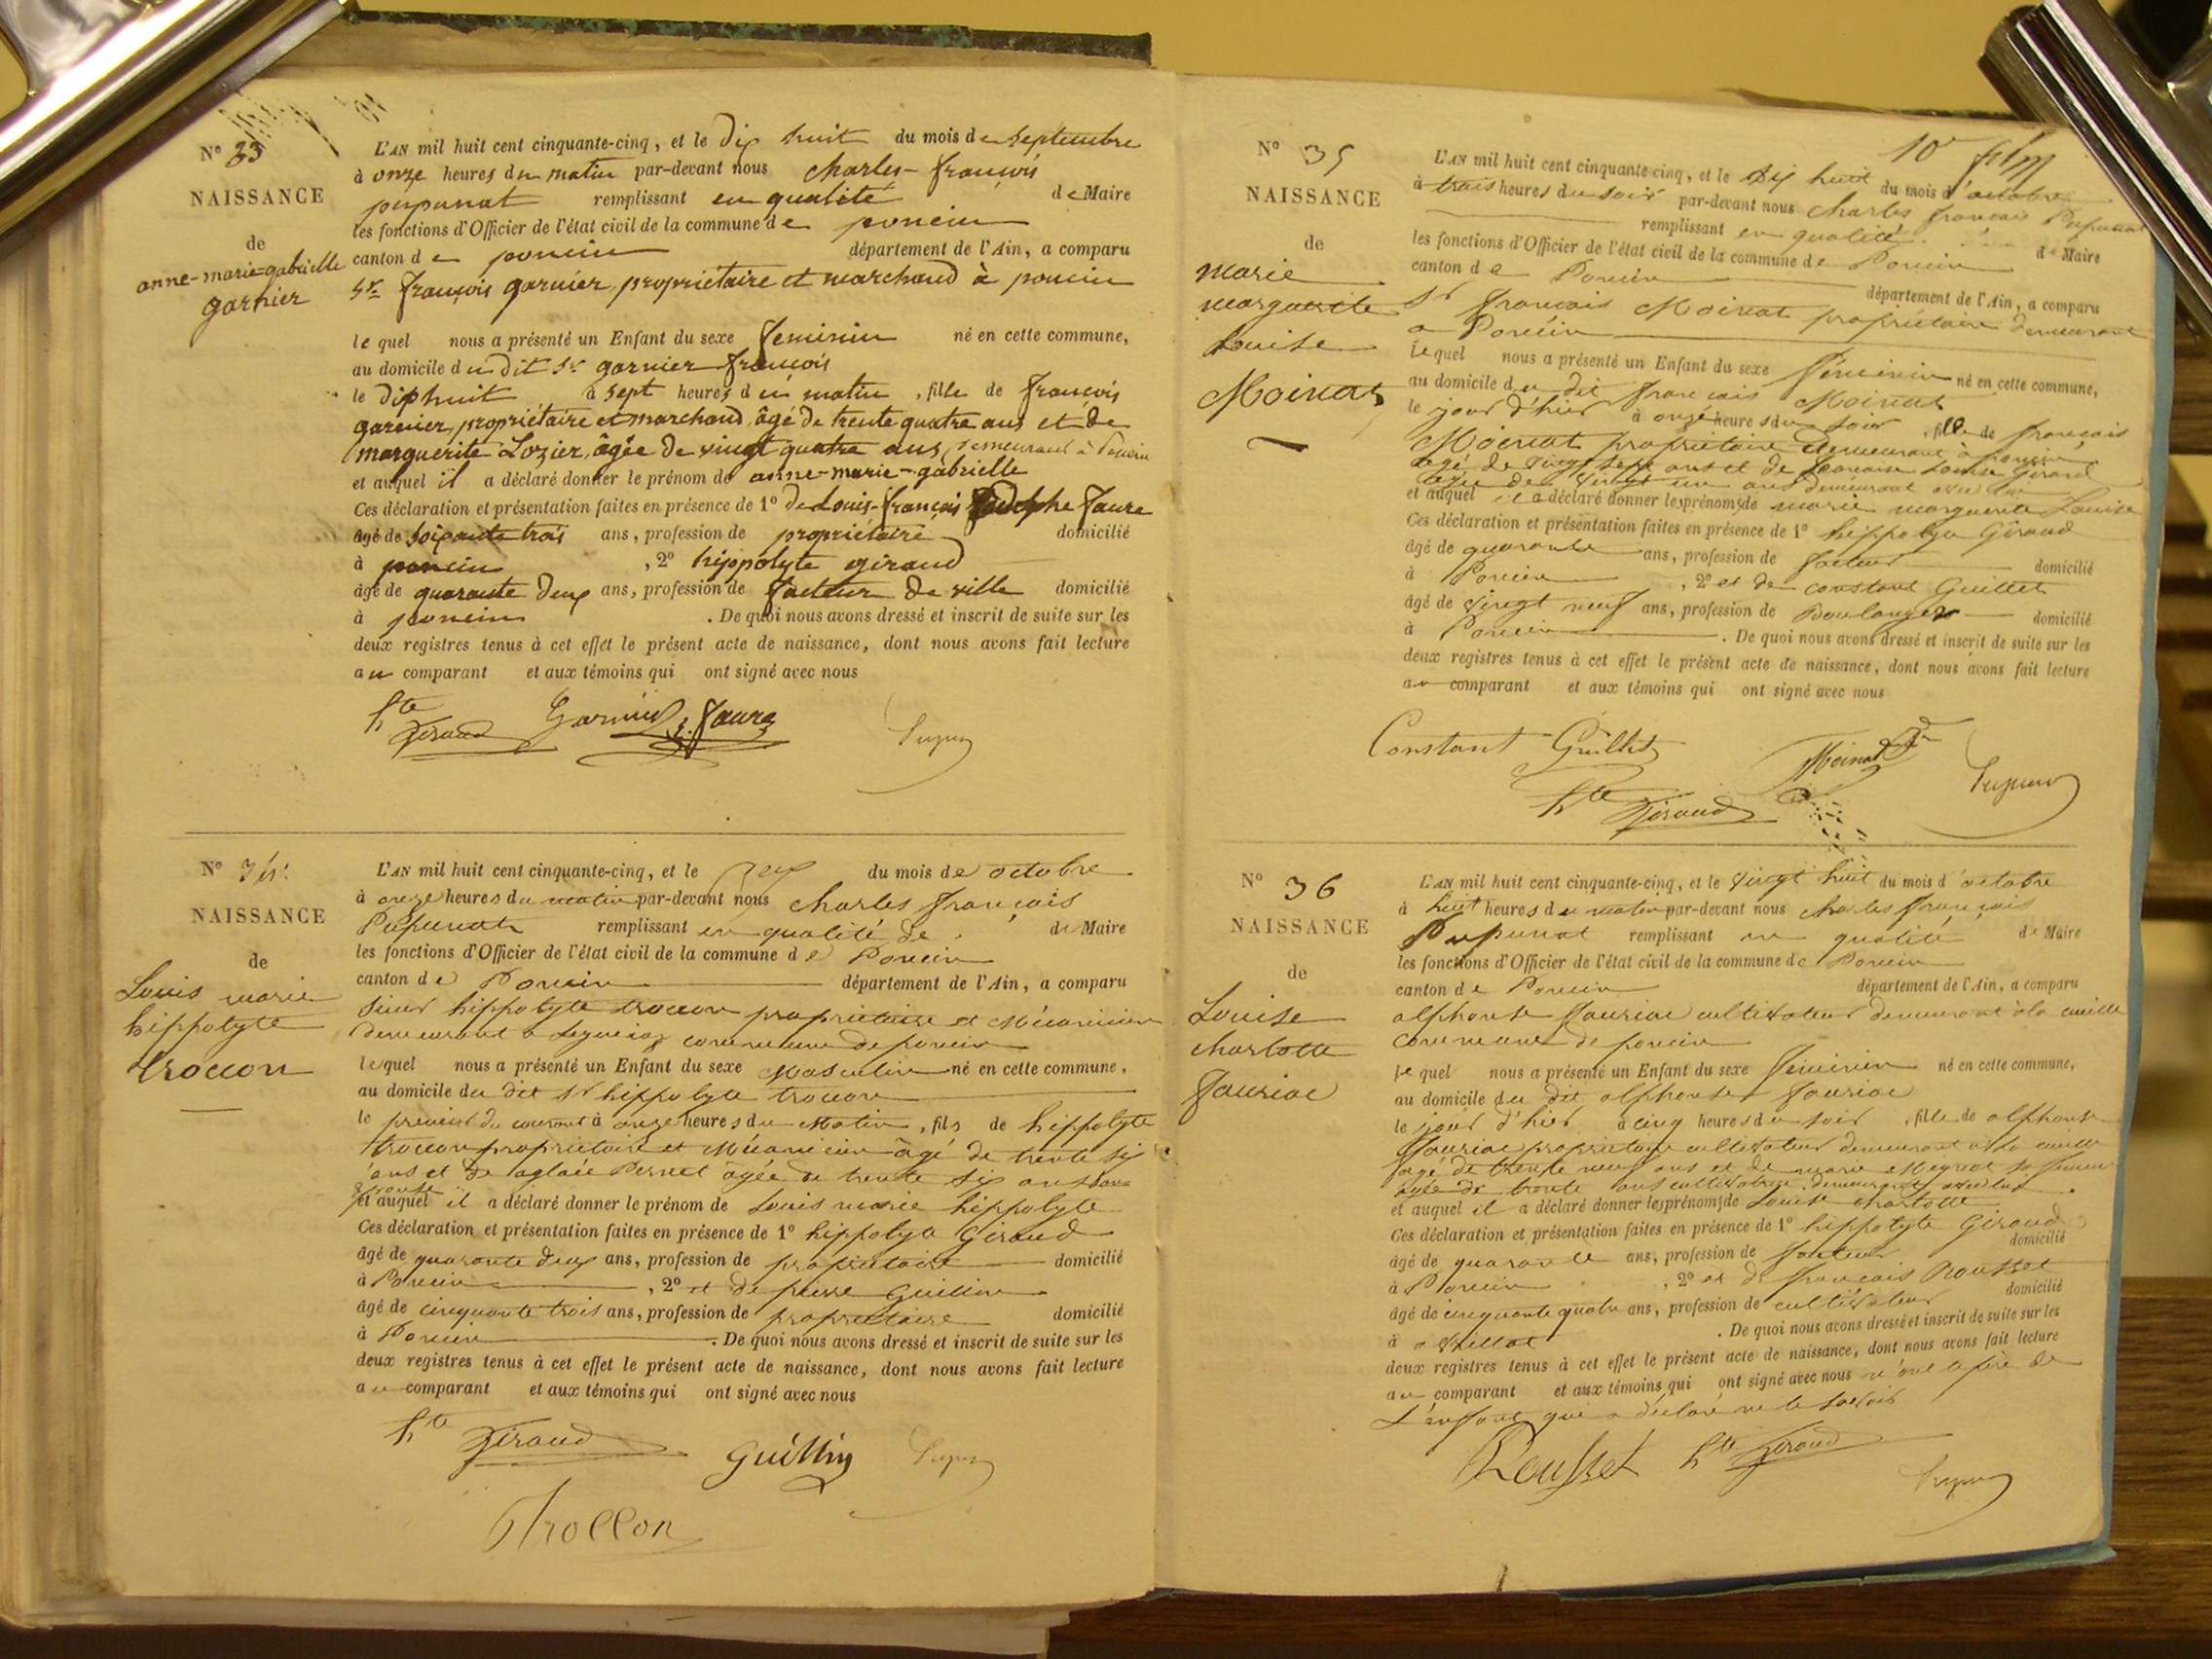 N° 33
NAISSANCE
de
anne-marie-gabrielle
garnier
L'AN mil huit cent cinquante-cinq, et le dix huit du mois de septembre
à onze heures du matin par-devant nous charles-françois
pupunat remplissant en qualité de Maire
les fonctions d'Officier de l'état civil de la commune de poncin
canton de poncin département de l'Ain, a comparu
Sr. françois garnier, propriétaire et marchand à poncin
lequel nous a présenté un Enfant du sexe feminin né en cette commune,
au domicile du dit Sr garnier françois
le dixhuit à sept heures du matin, fille de françois
garnier, propriétaire et marchand âgé de trente quatre ans et de
marguerite Lozier, âgée de vingt quatre ans, demeurant à Poncin
et auquel il a déclaré donner le prénom de anne-marie-gabrielle
Ces déclaration et présentation faites en présence de 1° de Louis-françois Faure
âgé de soixante trois ans, profession de propriétaire domicilié
à poncin, 2° hippolyte giraud
âgé de quarante deux ans, profession de facteur de ville domicilié
à poncin. De quoi nous avons dressé et inscrit de suite sur les
deux registres tenus à cet effet le présent acte de naissance, dont nous avons fait lecture
au comparant et aux témoins qui ont signé avec nous
hte Giraud Garnier Faure
N° 34
NAISSANCE
de
Louis marie
hippolyte
trocon
L'AN mil huit cent cinquante-cinq, et le deux du mois de octobre
à onze heures du matin par-devant nous charles françois
Pupunat remplissant en qualité de de Maire
les fonctions d'Officier de l'état civil de la commune de Poncin
canton de Poncin département de l'Ain, a comparu
sieur hippolyte trocon propriétaire et Mécanicien
demeurant a commune de poncin
lequel nous a présenté un Enfant du sexe Masculin né en cette commune,
au domicile du dit Sr hippolyte trocon
le premier du courant à onze heures du Matin, fils de hippolyte
trocon propriétaire et Mécanicien âgé de trente six
ans et de aglaée Pernet âgée de trente six ans son
épouse
et auquel il a déclaré donner le prénom de Louis marie hippolyte
Ces déclaration et présentation faites en présence de 1° hippolyte Giraud
âgé de quarante deux ans, profession de propriétaire domicilié
à Poncin, 2° et de pierre Guillin
âgé de cinquante trois ans, profession de propriétaire domicilié
à Poncin. De quoi nous avons dressé et inscrit de suite sur les
deux registres tenus à cet effet le présent acte de naissance, dont nous avons fait lecture
au comparant et aux témoins qui ont signé avec nous
hte Giraud Guillin
Trollon
N° 35
NAISSANCE
de
Marie
marguerite
Louise
Moinat
L'AN mil huit cent cinquante-cinq, et le dix huit du mois d'octobre
à trois heures du soir par-devant nous charles francois Pupunat
remplissant en qualité de Maire
les fonctions d'Officier de l'état civil de la commune de Poncin
canton de Poncin département de l'Ain, a comparu
Sr francois Moinat propriétaire demeurant
a Poncin
lequel nous a présenté un Enfant du sexe féminin né en cette commune,
au domicile du dit francois Moinat
le jour d'hier à onze heures du soir, fille de francois
Moinat propriétaire demeurant à Poncin
agé de vingt sept ans et de Louise Girard
agée de vingt un ans demeurant avec lui
et auquel il a déclaré donner les prénoms de marie marguerite Louise
Ces déclaration et présentation faites en présence de 1° hippolyte Giraud
âgé de quarante ans, profession de facteur domicilié
à Poncin, 2° et de constant Guillet
âgé de vingt neuf ans, profession de Boulanger domicilié
à Poncin. De quoi nous avons dressé et inscrit de suite sur les
deux registres tenus à cet effet le présent acte de naissance, dont nous avons fait lecture
au comparant et aux témoins qui ont signé avec nous
Constant Guillet Moinat
hte Giraud
N° 36
NAISSANCE
de
Louise
charlotte
Jauriac
L'AN mil huit cent cinquante-cinq, et le vingt huit du mois d'octobre
à huit heures du matin par-devant nous charles françois
Pupunat remplissant en qualité de Maire
les fonctions d'Officier de l'état civil de la commune de Poncin
canton de Poncin département de l'Ain, a comparu
alphonse Jauriac cultivateur demeurant à la cueille
commune de poncin
lequel nous a présenté un Enfant du sexe féminin né en cette commune,
au domicile du dit alphonse Jauriac
le jour d'hier à cinq heures du soir, fille de alphonse
Jauriac propriétaire cultivateur demeurant à la cueille
agé de trente neuf ans et de marie Meynat sa femme
agée de trente ans cultivatrice demeurant avec lui
et auquel il a déclaré donner les prénoms de Louise charlotte
Ces déclaration et présentation faites en présence de 1° hippolyte Giraud
âgé de quarante ans, profession de facteur domicilié
à Poncin, 2° et de français Rousset
âgé de cinquante quatre ans, profession de cultivateur domicilié
à. De quoi nous avons dressé et inscrit de suite sur les
deux registres tenus à cet effet le présent acte de naissance, dont nous avons fait lecture
au comparant et aux témoins qui ont signé avec nous le père de
L'enfant qui a déclaré ne le savoir
Rousset hte Giraud